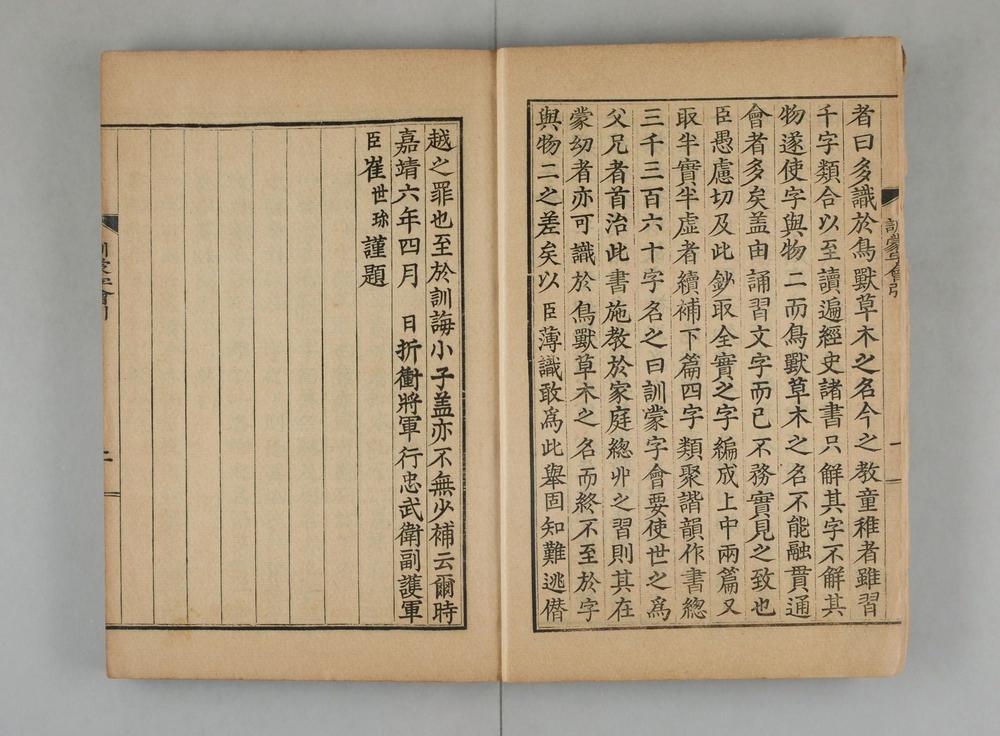 訓蒙字會引
一
者曰多識於鳥獸草木之名今之教童稚者雖習
千字類合以至讀遍經史諸書只解其字不解其
物遂使字與物二而鳥獸草木之名不能融貫通
會者多矣盖由誦習文字而已不務實見之致也
臣愚慮切及此鈔取全實之字編成上中兩篇又
取半實半虛者續補下篇四字類聚諧韻作書緫
三千三百六十字名之曰訓蒙字會要使世之爲
父兄者首治此書施教於家庭緫丱之習則其在
蒙幼者亦可識於鳥獸草木之名而終不至於字
與物二之差矣以臣薄識敢爲此舉固知難逃僭
越之罪也至於訓誨小子盖亦不無少補云爾時
嘉靖六年四月 日折衝將軍行忠武衛副護軍
臣崔世珎謹題
二